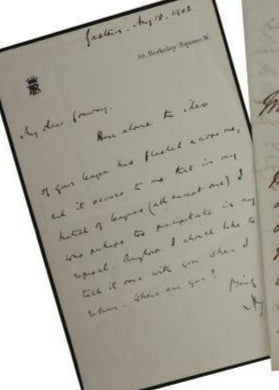 Gastein. Aug 18. 1903
38, Berkeley Square. W.
My dear
Here alone the idea
of your league has flashed across me,
and it occurs to me that in my
hatred of leagues (all except one) I
was perhaps too precipitate in my
refusal. Anyhow I should like to
talk it over with you when I
return. Where are you?